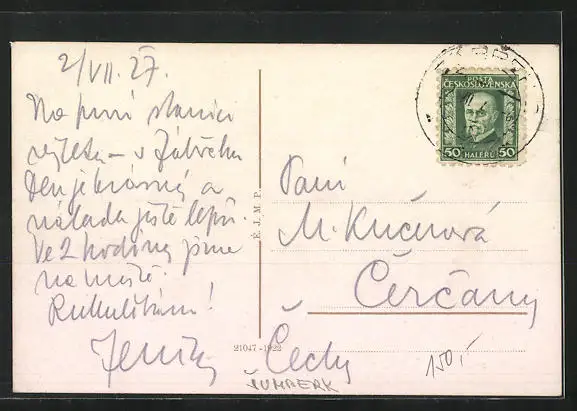 2/VII. 27.
Na první stanici
výletu – v Zábřehu
Den je krásný a
nálada ještě lepší.
Ve 2 hodiny jsme
na
Rukulíbám!
Jeník
É. J. M. P.
21047 - 1922
POŠTA
ČESKOSLOVENSKÁ
50 HALÉŘŮ 50
Paní
M. Kučerová
Čerčany
Čechy
ŠUMPERK
150,-